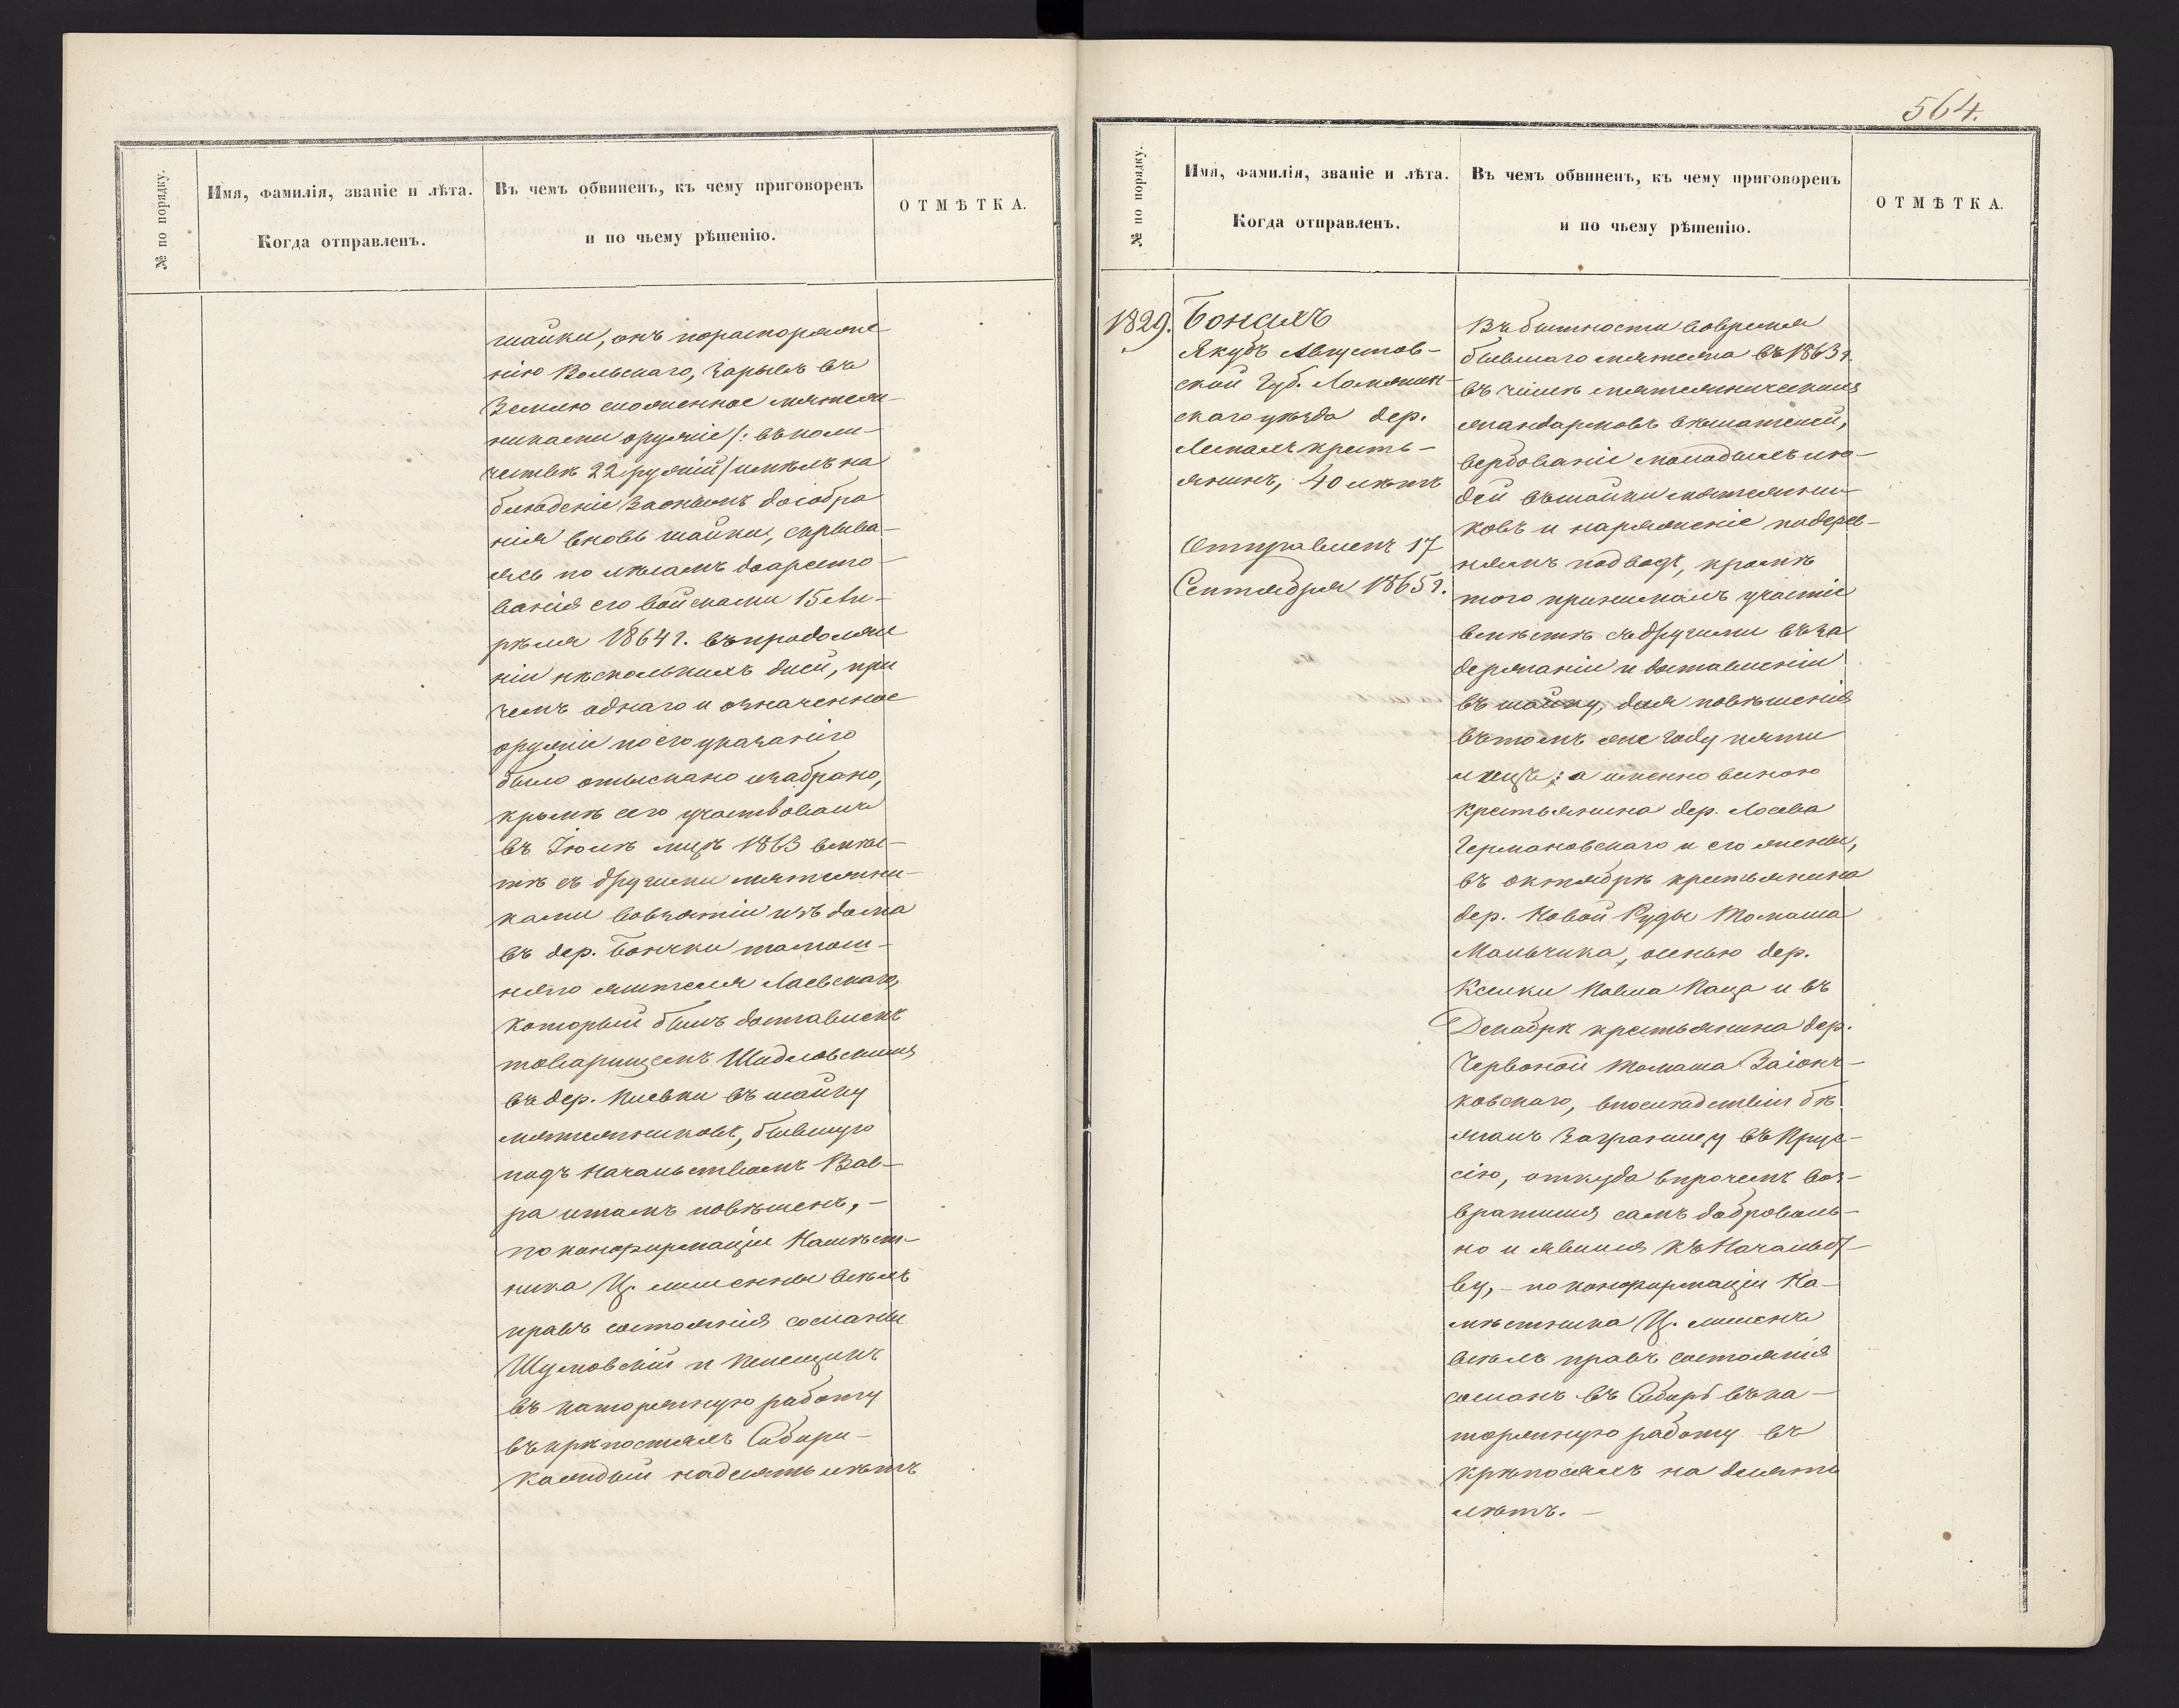 № по порядку.
Имя, фамилія, званіе и лѣта.
Когда отправленъ.
Въ чемъ обвиненъ, къ чему приговоренъ
и по чьему рѣшенію.
ОТМѢТКА.
шайки, онъ пораспоряже
нію Вольскаго, зарылъ въ
землю сложенное мятеж-
никами оружіе /: въ коли-
чествѣ 22 ружій / имѣлъ на
блюденіе за онымъ до собра
нія вновь шайки, скрыва-
ясь по лѣсамъ до аресто-
ванія его войсками 15 Ап-
рѣля 1864 г. въ продолже
ніи нѣсколькихъ дней, при
чемъ однаго и означенное
оружіе по его указанію
было отыскано и забрано,
кромѣ сего участвовалъ
въ Іюлѣ мцѣ 1863 вмѣс-
тѣ съ другими мятежни-
ками вовзятіи изъ дома
въ дер. Бончки тамош-
няго жителя Лаевскаго,
который былъ доставленъ
товарищемъ Шидловскимъ
въ дер. Писки въ шайку
мятежниковъ, бывшую
подъ начальствомъ Вав-
ра и тамъ повѣшенъ, -
по конфирмаціи Намѣст-
ника Ц. лишены всѣхъ
правъ состоянія сосланы
Шумовскій и
въ каторжную работу
въ крѣпостяхъ Сибири -
каждый на десять лѣтъ
564.
№ по порядку.
Имя, фамилія, званіе и лѣта.
Когда отправленъ.
Въ чемъ обвиненъ, къ чему приговоренъ
и по чьему рѣшенію.
ОТМѢТКА.
1829.
Боналъ
Якубъ Августов-
ской Губ. Ломжин-
скаго уѣзда дер.
кресть-
янинъ, 40 лѣтъ
Отправленъ 17
Сентября 1865 г.
Въ бытности вовремя
бывшаго мятежа въ 1863 г.
въ числѣ мятежническихъ
жандармовъ вѣшателей,
вербованіе молодыхъ лю-
дей въ шайки мятежни-
ковъ и наряженіе подерев-
нямъ подводъ, кромѣ
того принималъ участіе
вмѣстѣ съ другими въ за
держаніи и доставленіи
въ шайку, для повѣшенія
въ томъ же году пяти
лицъ; а именно весною
крестьянина дер. Лосева
Германовскаго и его жены,
въ октябрѣ крестьянина
дер. Новой Руды Томаша
Мальчика, осенью дер.
Ксенки Павла Паца и въ
Декабрѣ крестьянина дер.
Червоной Томаша Заіонч-
ковскаго, впослѣдствіи бѣ
жалъ заграницу въ Прус-
сію, откуда впрочемъ воз-
вратился самъ доброволь-
но и явился къ Начальст-
ву, - по конфирмаціи На-
мѣстника Ц. лишенъ
всѣхъ правъ состоянія
сосланъ въ Сибирь въ ка-
торжную работу въ
крѣпосяхъ на десять
лѣтъ. -